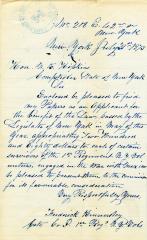 No. 218 E. 42nd St
New York
New York July 25th 1873
Hon. N. K. Hopkins
Comptroller State of New York
Sir
Enclosed be pleased to find
my Papers as an Applicant for
the benefit of the Law, passed by the
Legislature of New York in May of this
Year, appropriating two hundred
and Eighty dollars to each of certain
survivors of the 1st Regiment N.Y. Vol
unteers, engaged in the war with Mexico
be pleased to present them to the Comptroller
for its favorable consideration
Very Respectfully Yours
Frederick
Late Co. I 1st Reg't N.Y. Vols